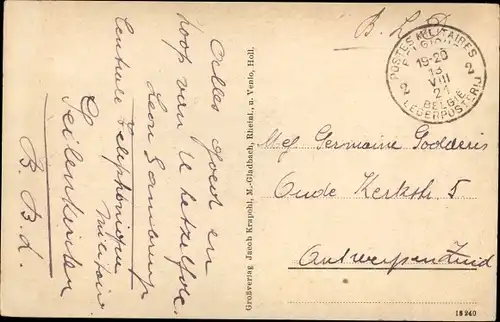 B. L. D.
POSTES MILITAIRES
BELGIQUE
19-20
13
VIII
21
2 2
BELGIE
LEGERPOSTERIJ
Alles goed en
hoop van U hetzelfde.
Leon
Centrale Téléphonique
Militaire
Seilenkirden
B. B. d.
Großverlag Jacob Krapohl, M.-Gladbach, Rheinl., u. Venlo, Holl.
Mej Germaine Godderis
Oude Kerkstr. 5
Antwerpen Zuid
18 240